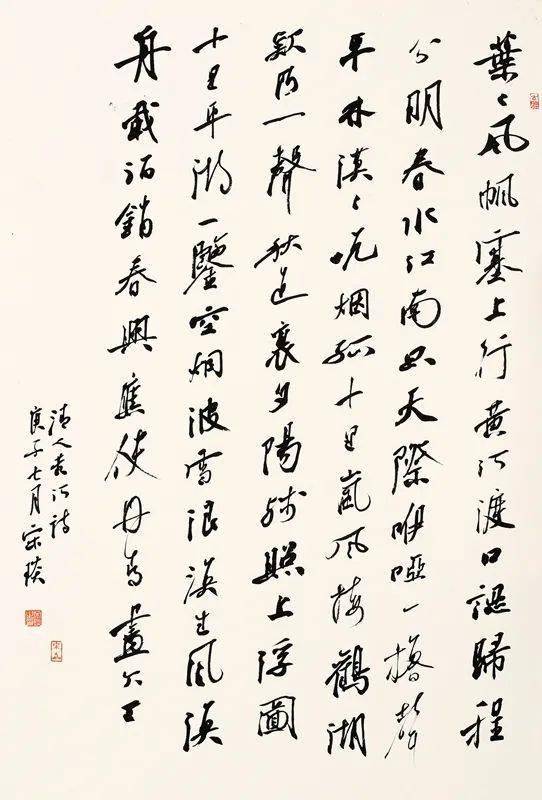 葉〻風帆塞上行黃河渡口認歸程
分明春水江南天際咿啞一櫓聲
平林漠〻晚烟孤十里嵐風接鶴湖
欸一聲秋色裏夕陽殘照上浮圖
十里平湖一鑒空烟波雪浪生風
舟載酒銷春興應使丹青畫不工
清人袁詩
庚子七月宋琰